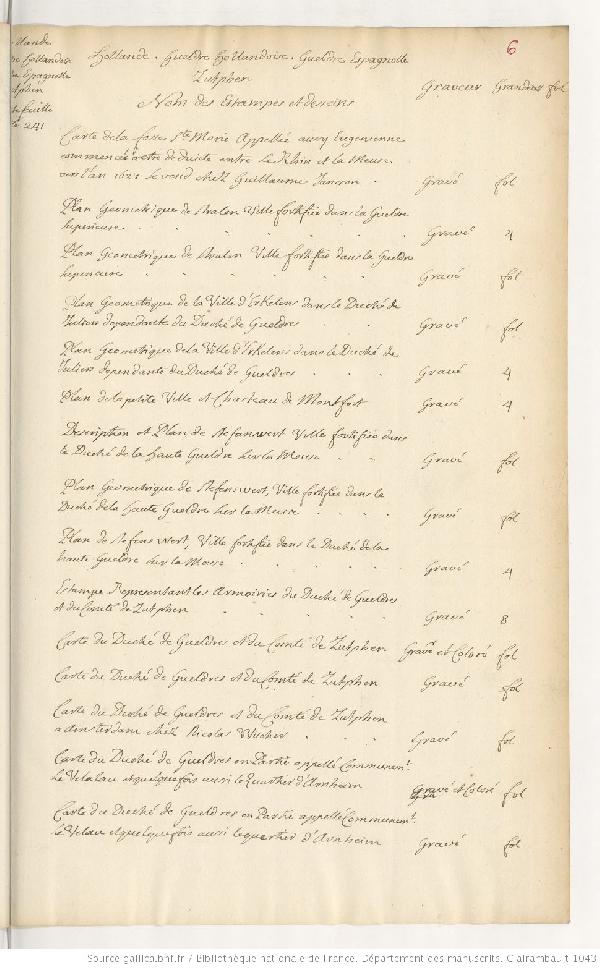 6
Hollande . Gueldre Hollandoise . Gueldre Espagnolle
Zutphen
Nom des Estampes et desseins Graveur Grandeur fol
Carte de la fosse Ste Marie Appellée aussy Eugenienne
commencée et de duite entre le Rhin et la Meuse
vers l'an 1627 se vend chez Guillaume Jansson . Gravé fol
Plan Geometrique de Walen Ville fortifiée dans la Gueldre
superieure . . . . Gravé 4
Plan Geometrique de Walen Ville fortifiée dans la Gueldre
superieure . . . . Gravé fol
Plan Geometrique de la Ville d'Erkelens dans le Duché de
Julien dependante du Duché de Gueldres . . Gravé fol
Plan Geometrique de la Ville d'Erkelens dans le Duché de
Julien dependante du Duché de Gueldres . . . Gravé 4
Plan de la petite Ville et Chasteau de Montfort Gravé 4
Description et Plan de Stefanwert Ville fortifiée dans
le Duché de la haute Gueldre sur la Meuse . . Gravé fol
Plan Geometrique de Stefenswert, Ville fortifiée dans le
Duché de la Haute Gueldre sur la Meuse . . . . Gravé fol
Plan de Stefenswert, Ville fortifiée dans le Duché de la
haute Gueldre sur la Meuse . . . . Gravé 4
Estampe Representant les Armoiries du Duché de Gueldres
et du Comté de Zutphen . . . . Gravé 8
Carte du Duché de Gueldres et du Comté de Zutphen Gravé et Coloré fol
Carte du Duché de Gueldres et du Comté de Zutphen Gravé fol
Carte du Duché de Gueldres et du Comté de Zutphen
a Amsterdam chez Nicolas Visscher . . . Gravé fol
Carte du Duché de Gueldres en Partie appellé Communemt.
Le Velalau et quelque fois aussi le Quartier d'Arnheim Gravé et Coloré fol
Carte du Duché de Gueldres en Partie appellé Communemt.
le Velau et quelque fois aussi le quartier d'Arnheim Gravé fol
Source gallica.bnf.fr / Bibliothèque nationale de France. Département des manuscrits. Clairambault 1043